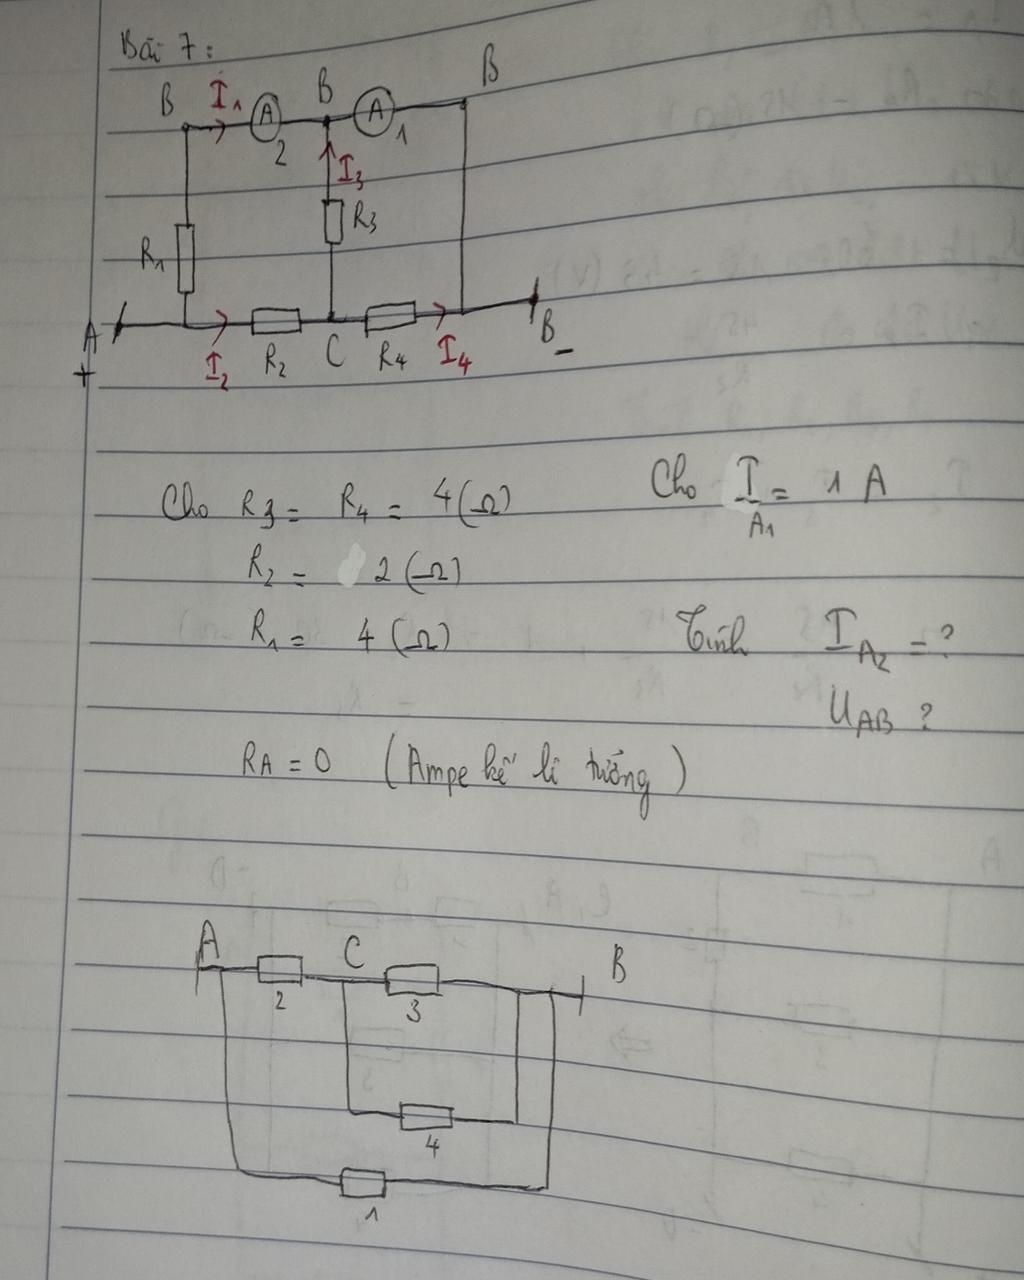 Bài 7:
B I₁ A 2 B A 1 B
I₃
R₁ R₃
A + I₂ R₂ C R₄ I₄ B -
Cho R3 = R₄ = 4(Ω) Cho I A₁ = 1 A
R₂ = 2(Ω)
R₁ = 4(Ω) Tính I A₂ = ?
U AB ?
RA = 0 (Ampe kế lí tưởng)
A C B
2 3
4
1